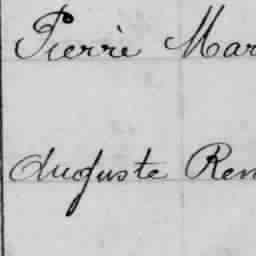 Pierre Mar
Auguste Ren